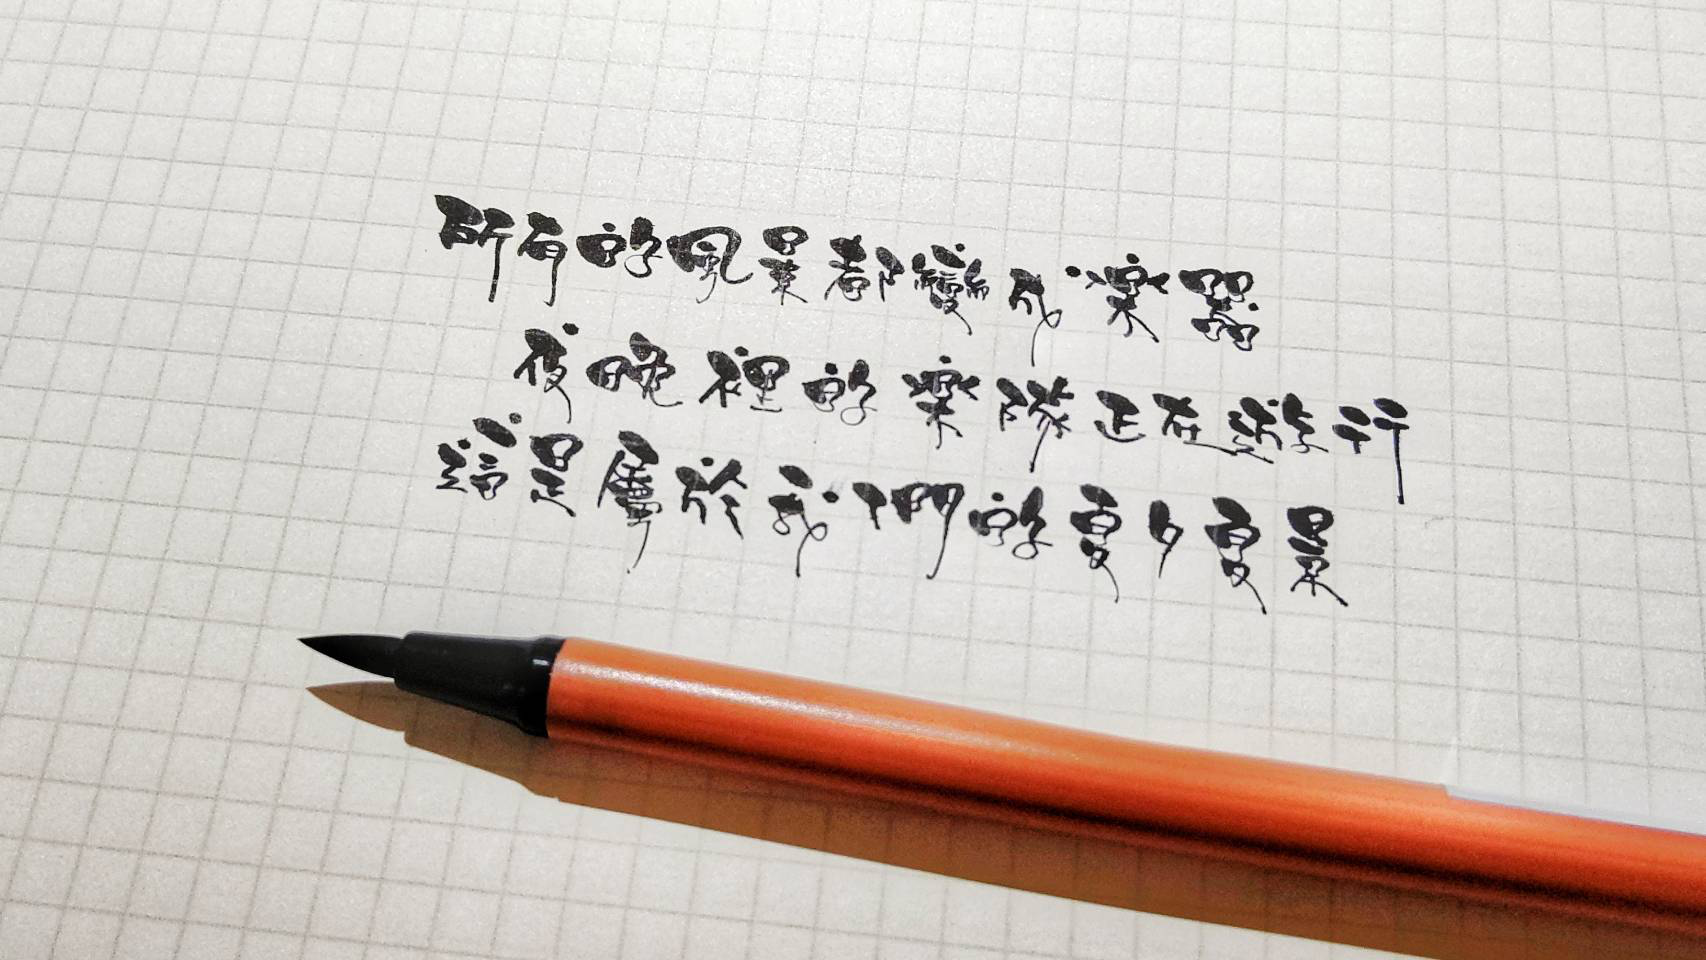 所有的風景都變成樂器
夜晚裡的樂隊正在遊行
這是屬於我們的夏夕夏景